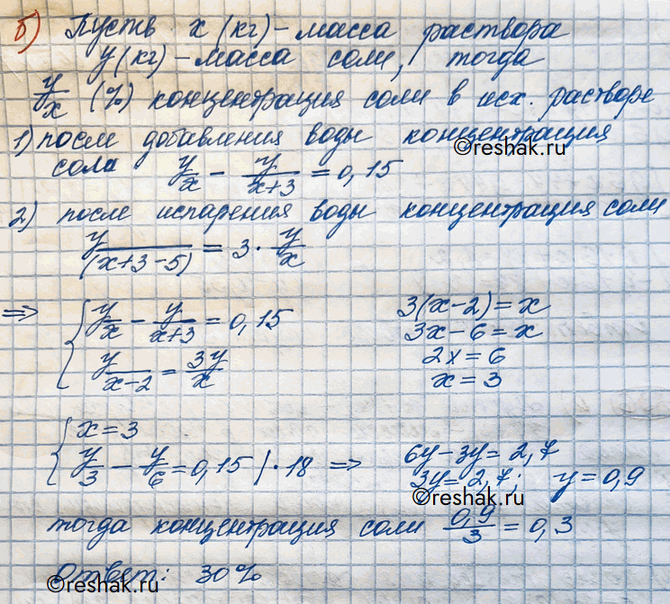 б) Пусть x (кг) – масса раствора
y (кг) – масса соли, тогда
y/x (%) концентрация соли в исх. растворе
1) после добавления воды концентрация
©reshak.ru
сола y/x - y/(x+3) = 0,15
2) после испарения воды концентрация соли
y/(x+3-5) = 3 · y/x
=> { y/x - y/(x+3) = 0,15
y/(x-2) = 3y/x
3(x-2) = x
3x-6 = x
2x = 6
x = 3
{ x = 3
y/3 - y/6 = 0,15 | · 18 =>
6y-3y = 2,7
3y = 2,7; y = 0,9
©reshak.ru
тогда концентрация соли 0,9/3 = 0,3
Ответ: 30%
©reshak.ru